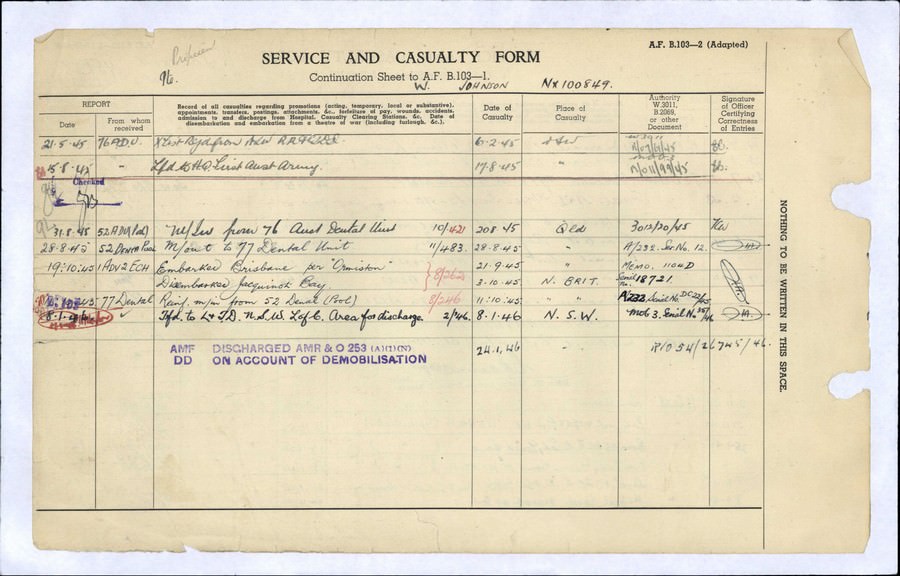 A.F. B.103—2 (Adapted)
SERVICE AND CASUALTY FORM
Pte.
Continuation Sheet to A.F. B.103—1.
W. JOHNSON NX100849.
REPORT
Date
From whom received
Record of all casualties regarding promotions (acting, temporary, local or substantive), appointments, transfers, postings, attachments, &c., forfeiture of pay, wounds, accidents, admission to and discharge from Hospital, Casualty Clearing Stations, &c. Date of disembarkation and embarkation from a theatre of war (including furlough, &c.).
Date of Casualty
Place of Casualty
Authority W.3011, B.2069, or other Document
Signature of Officer Certifying Correctness of Entries
21.5.45 76 A.D.U. 6.2.45
15.8.45 " Tfd to H.Q. List Aust Army. 17.8.45 "
Checked
31.8.45 52 ADU (Pool) M/In from 76 Aust Dental Unit 10/421 20 8 45 Qld 3012/20/45
28.8.45 52 Dental Pool M/out to 77 Dental Unit 11/483 28.8.45 " A/232 Ser No. 12.
19:10:45 1 ADV 2 ECH Embarked Brisbane per "Ormiston" 21.9.45 " MEMO. 1104D
Disembarked Jacquinot Bay 3.10.45 N. BRIT. Serial No. 18721
45 77 Dental Reinf. m/in from 52 Dental (Pool) 8/246 11:10:45 " " A232 Serial No. DC22/45
8.1.46 Tfd. to L & T.D. N.S.W. L of C. Area for discharge. 2/46. 8.1.46 N.S.W. Mob 3. Serial No.
AMF DISCHARGED AMR & O 253 (A)(1)(N) 24.1.46 R/O 54/26745/46.
DD ON ACCOUNT OF DEMOBILISATION
NOTHING TO BE WRITTEN IN THIS SPACE.